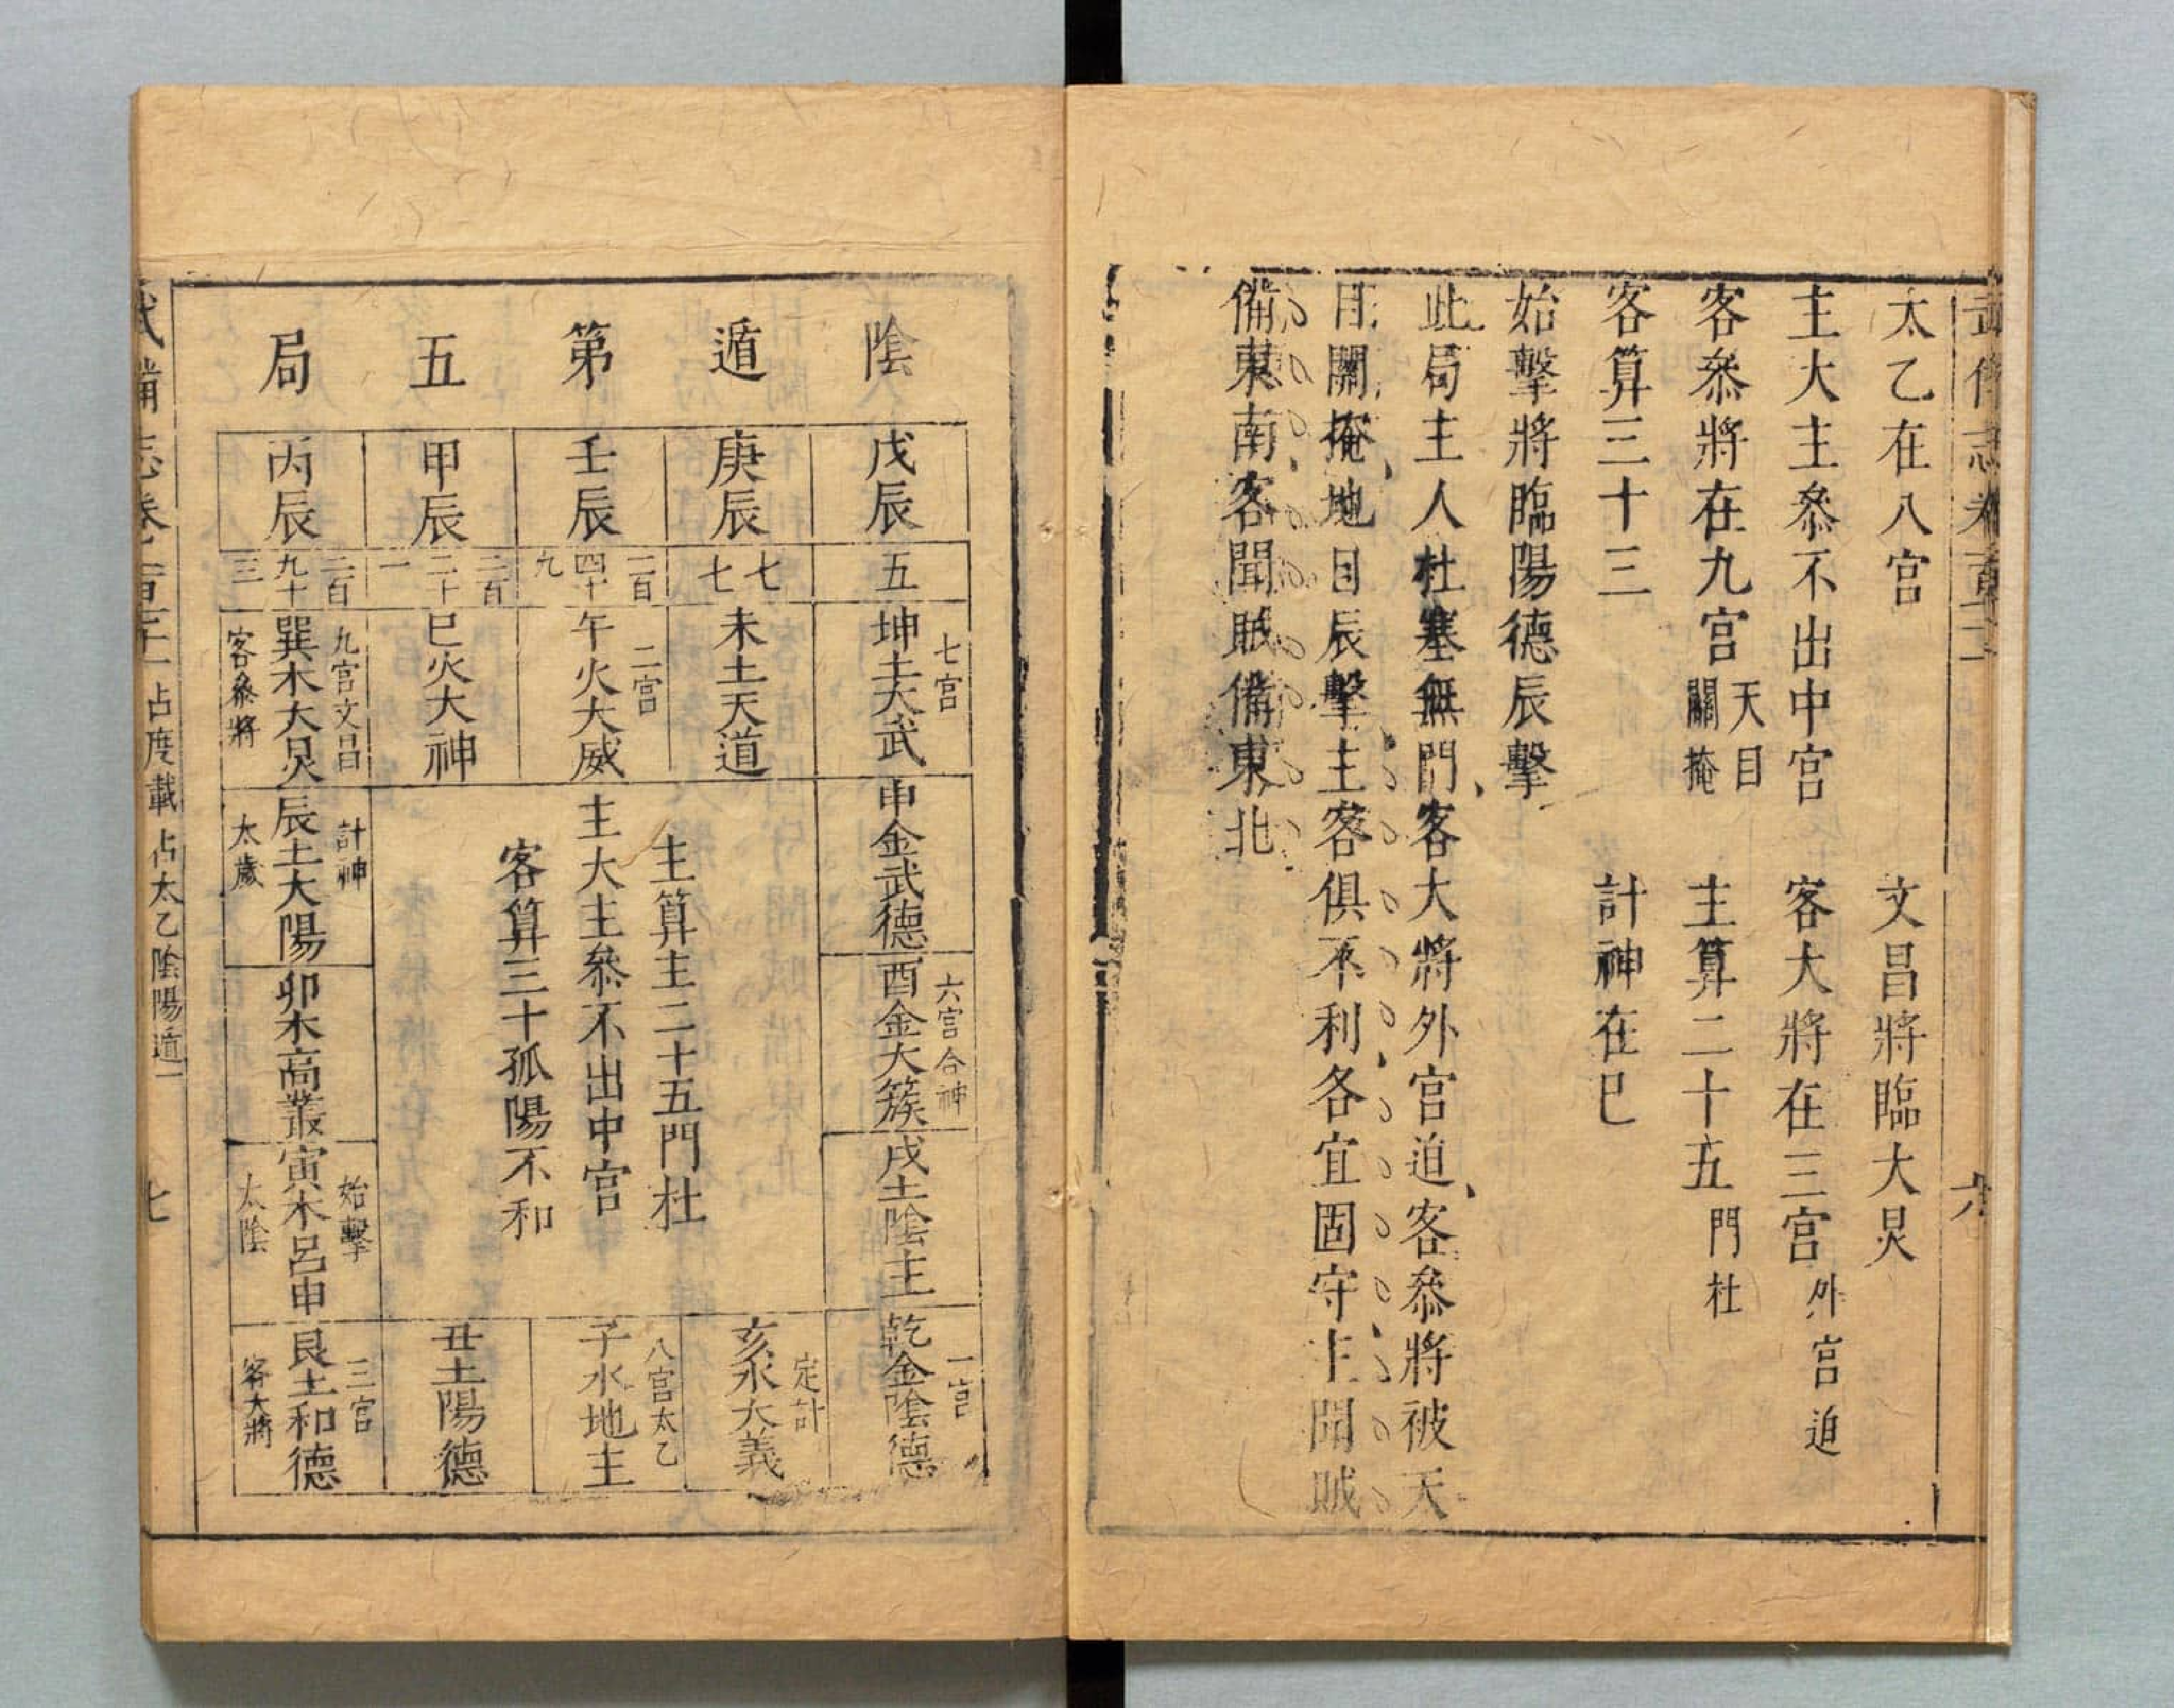 太乙在八宮　文昌將臨大炅
主大主叅不出中宮　客大將在三宮外宮迫
客叅將在九宮天目關掩　主算二十五門杜
客算三十三　計神在巳
始擊將臨陽德辰擊
此局主人杜塞無門客大將外宮迫客叅將被天
目關掩地目辰擊主客俱不利各宜固守主聞賊
備東南客聞賊備東北
陰遁第五局
戊辰
庚辰
壬辰
甲辰
丙辰
五
七七
二百四十九
二百二十一
二百九十三
七宮
坤土大武
未土天道
二宮
午火大威
巳火大神
九宮文昌
巽木大炅
客叅將
申金武德
六宮合神
酉金大簇
戌土陰主
一宮
乾金陰德
主算主二十五門杜
主大主叅不出中宮
客算三十孤陽不和
計神
辰土大陽
太歲
卯木高叢
始擊
寅木呂申
太陰
定計
亥水大義
八宮太乙
子水地主
丑土陽德
三宮
艮土和德
客大將
占度載　占太乙陰陽遁一
七